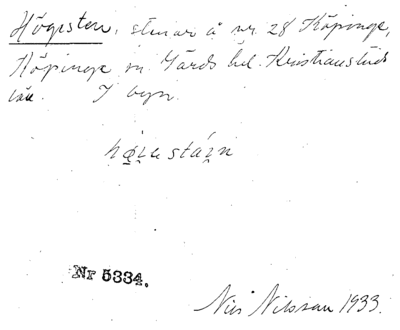 Högisten, stenar å nr 28 Köpinge,
Köpinge sn Gärds hd. Kristianstads
län. I byn.
Nr 5334.
Nils Nilsson 1933.